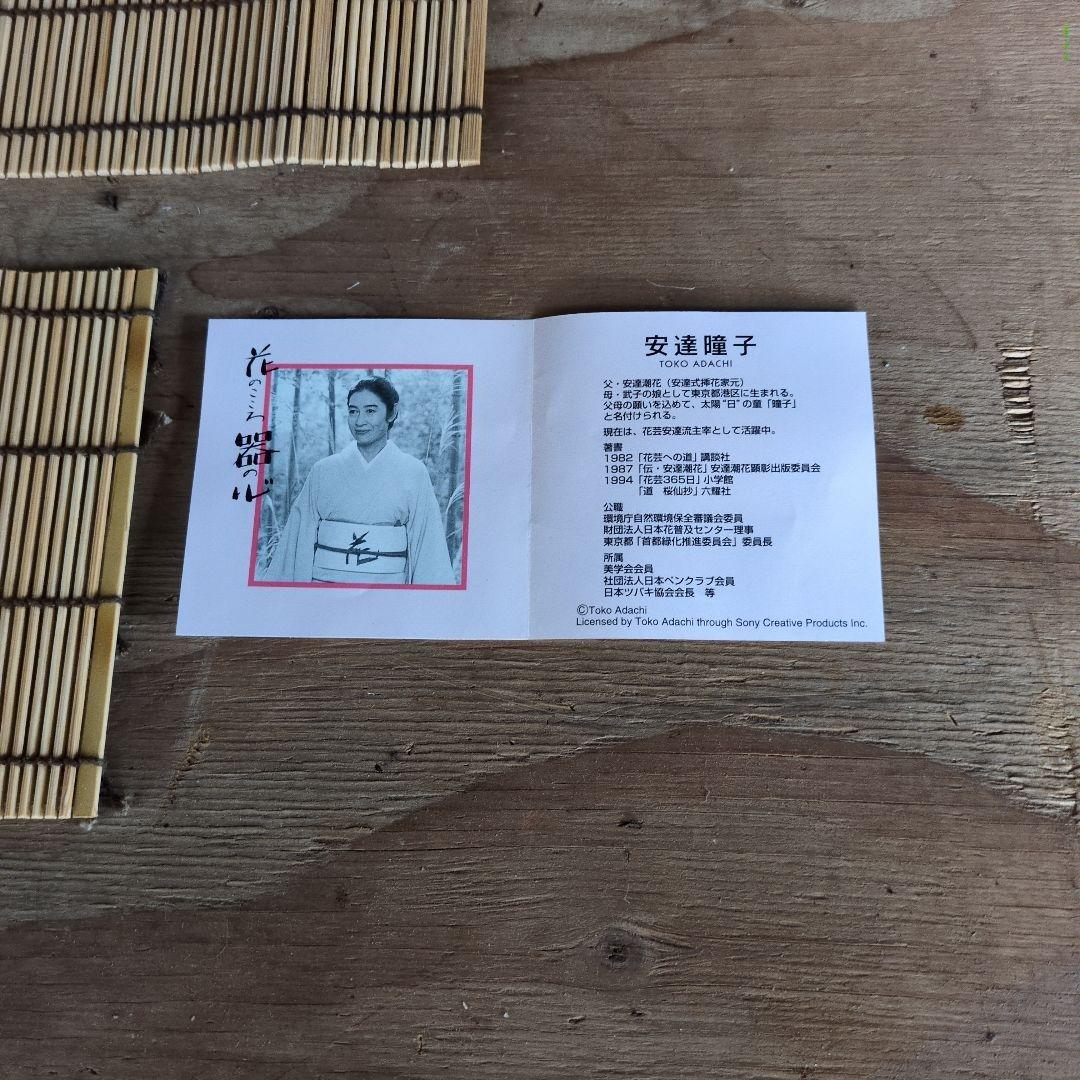 花のこころ
器の心
花
安達瞳子
TOKO ADACHI
父・安達潮花（安達式挿花家元）
母・武子の娘として東京都港区に生まれる。
父母の願いを込めて、太陽“日”の童「瞳子」
と名付けられる。
現在は、花芸安達流主宰として活躍中。
著書
1982「花芸への道」講談社
1987「伝・安達潮花」安達潮花顕彰出版委員会
1994「花芸365日」小学館
「道　桜仙抄」六耀社
公職
環境庁自然環境保全審議会委員
財団法人日本花普及センター理事
東京都「首都緑化推進委員会」委員長
所属
美学会会員
社団法人日本ペンクラブ会員
日本ツバキ協会会長　等
©Toko Adachi
Licensed by Toko Adachi through Sony Creative Products Inc.